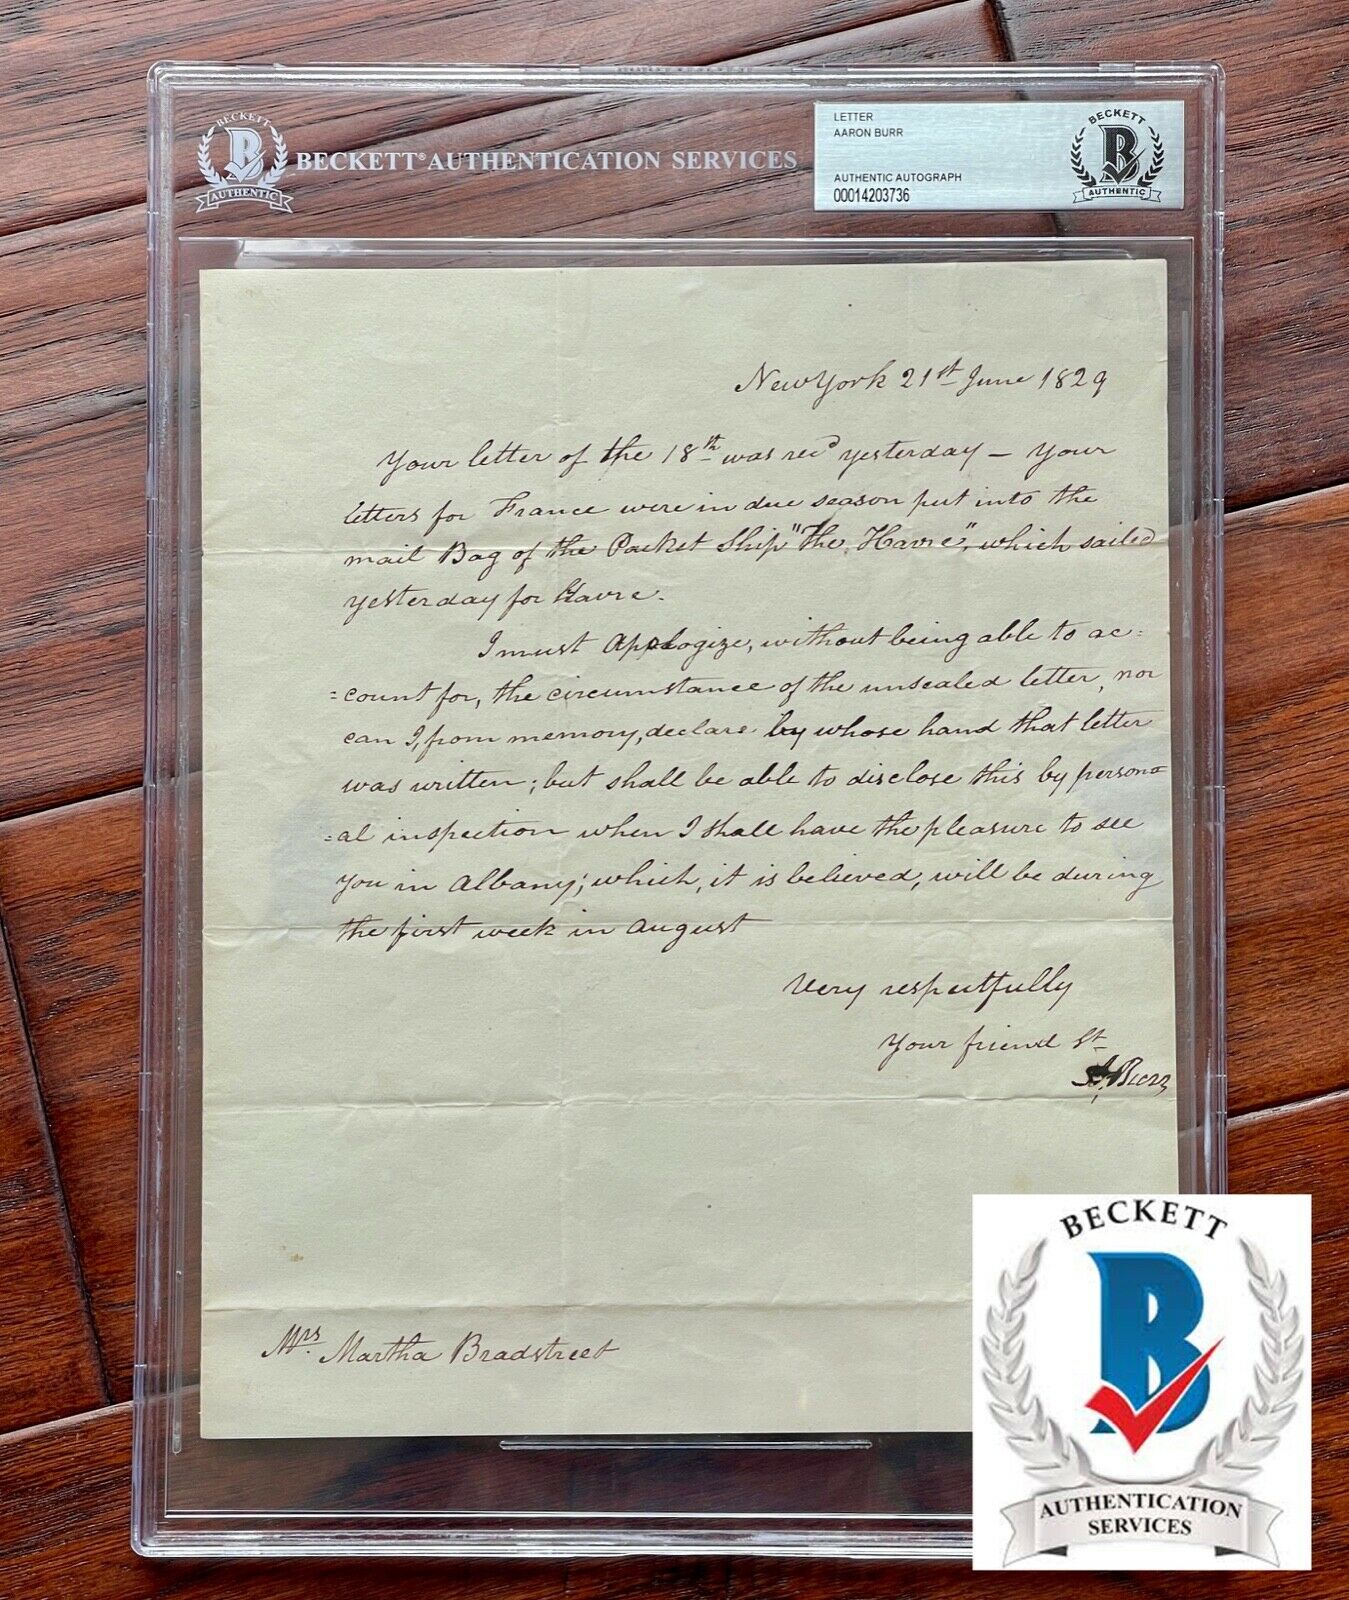 BECKETT
B
AUTHENTIC
BECKETT® AUTHENTICATION SERVICES
LETTER
AARON BURR
AUTHENTIC AUTOGRAPH
00014203736
BECKETT
B
AUTHENTIC
New York 21st June 1829
Your letter of the 18th was recd yesterday – Your
letters for France were in due season put into the
mail Bag of the Packet Ship "The Havre", which sailed
yesterday for Havre.
I must Apologize, without being able to ac=
=count for, the circumstance of the unsealed letter, nor
can I, from memory, declare by whose hand that letter
was written; but shall be able to disclose this by person=
=al inspection when I shall have the pleasure to see
you in Albany; which, it is believed, will be during
the first week in August
Very respectfully
Your friend St
A. Burr
Mrs. Martha Bradstreet
BECKETT
B
AUTHENTICATION
SERVICES